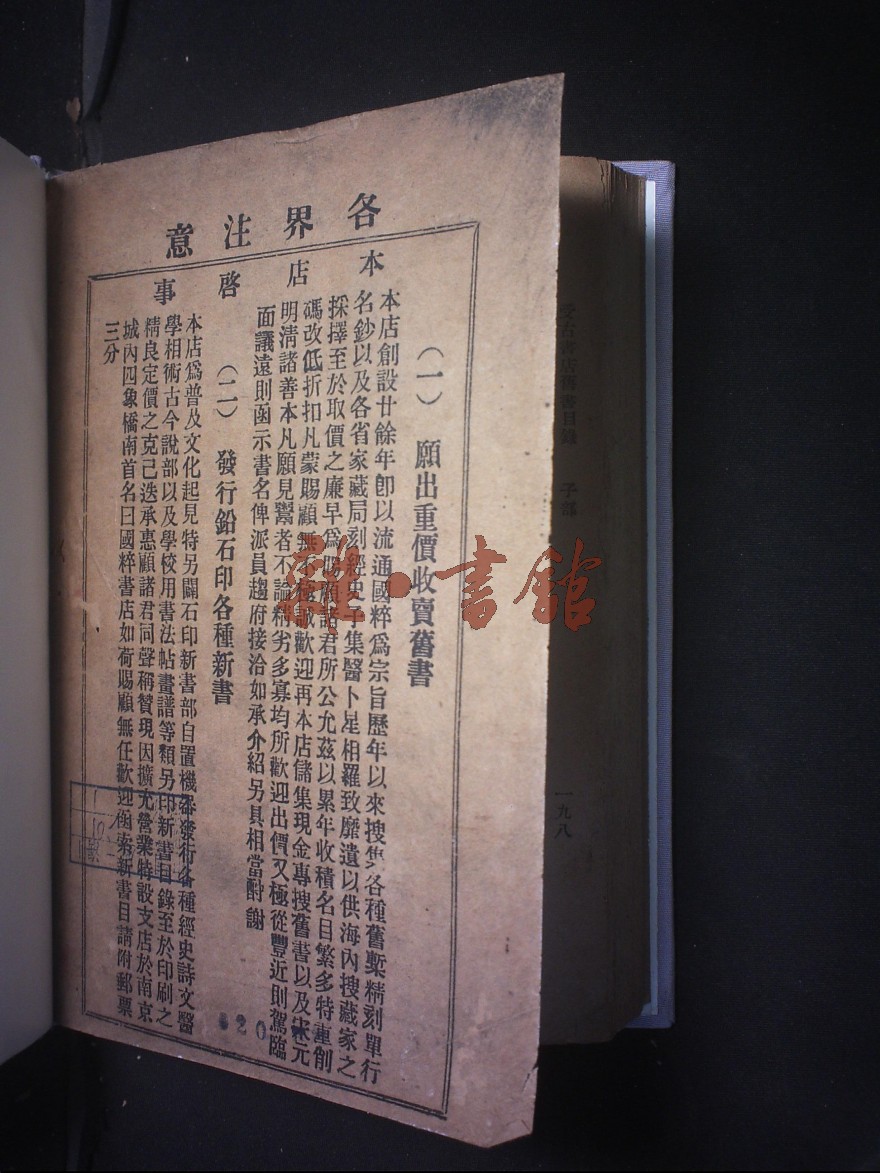 各界注意
本店啓事
（一）　願出重價收賣舊書
本店創設廿餘年卽以流通國粹爲宗旨歷年以來搜集各種舊槧精刻單行
名鈔以及各省家藏局刻經史子集醫卜星相羅致靡遺以供海內搜藏家之
採擇至於取價之廉早爲賜顧諸君所公允茲以累年收積名目繁多特重創
碼改低折扣凡蒙賜顧無不極誠歡迎再本店儲集現金專搜舊書以及宋元
明淸諸善本凡願見鬻者不論精劣多寡均所歡迎出價又極從豐近則駕臨
面議遠則函示書名俾派員趨府接洽如承介紹另具相當酧謝
（二）　發行鉛石印各種新書
本店爲普及文化起見特另闢石印新書部自置機器發行各種經史詩文醫
學相術古今說部以及學校用書法帖畫譜等類另印新書目錄至於印刷之
精良定價之克己迭承惠顧諸君同聲稱贊現因擴充營業特設支店於南京
城內四象橋南首名曰國粹書店如荷賜顧無任歡迎函索新書目請附郵票
三分
受古書店舊書目錄　子部
一九八
雜·書館